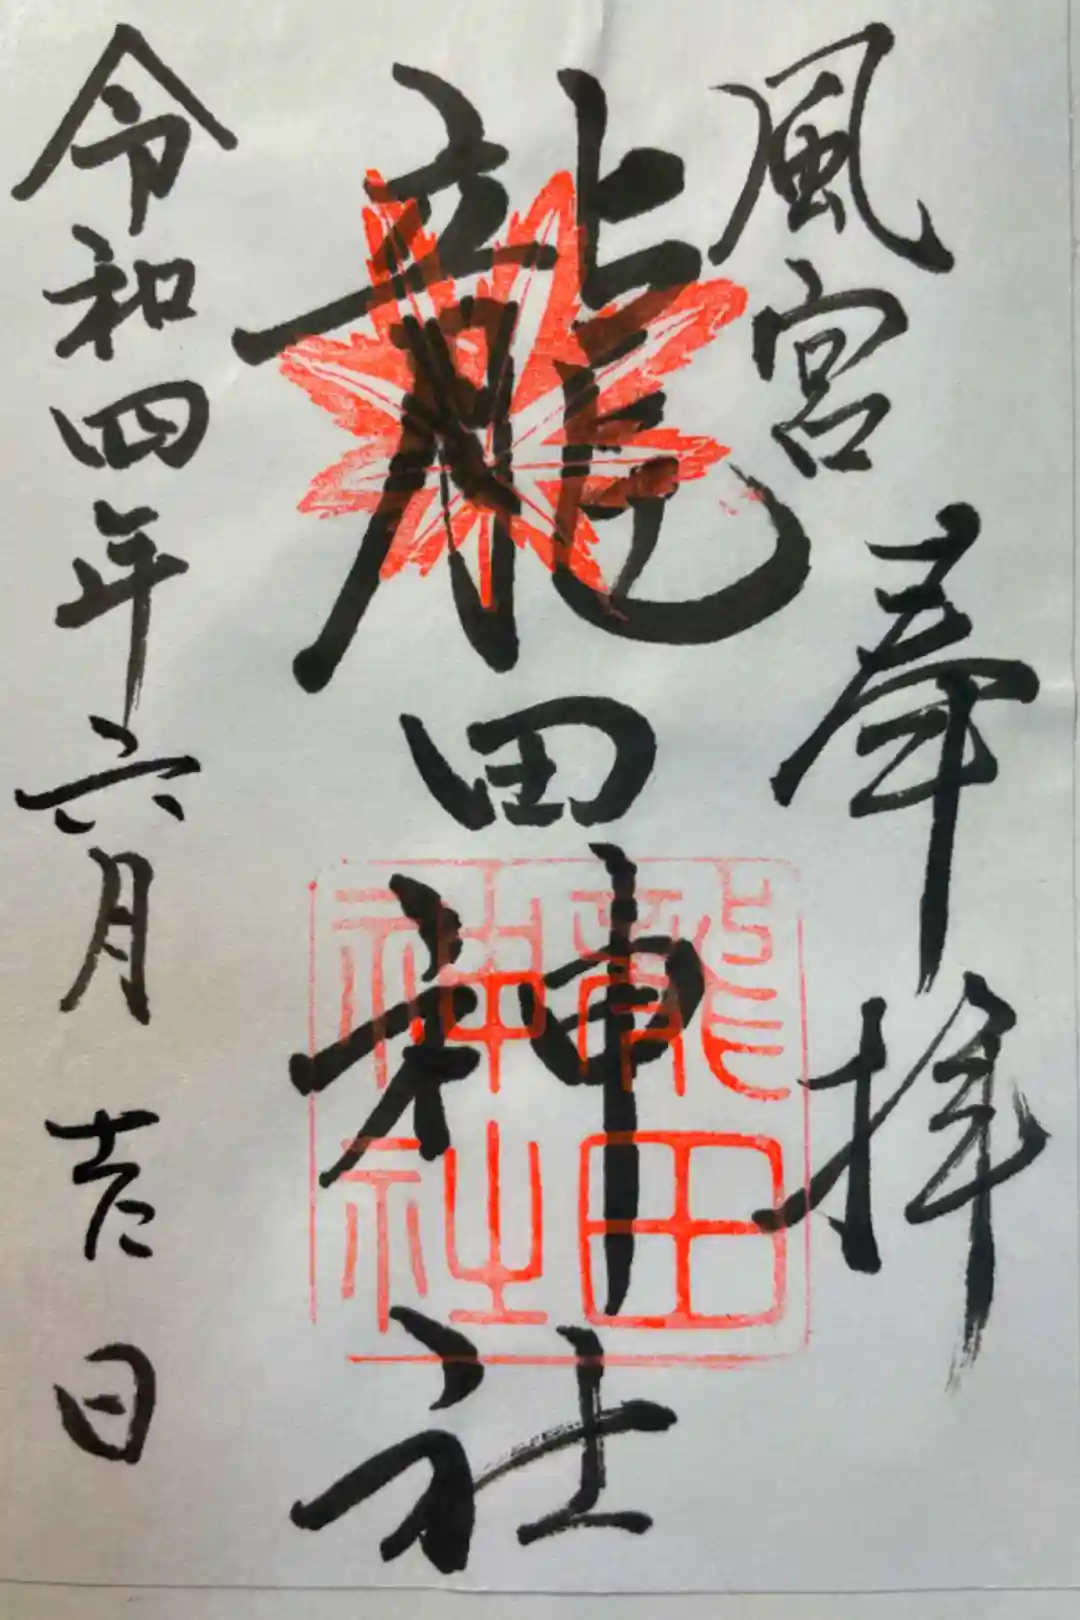 風宮
奉拝
龍田神社
龍田
神社
令和四年六月吉日